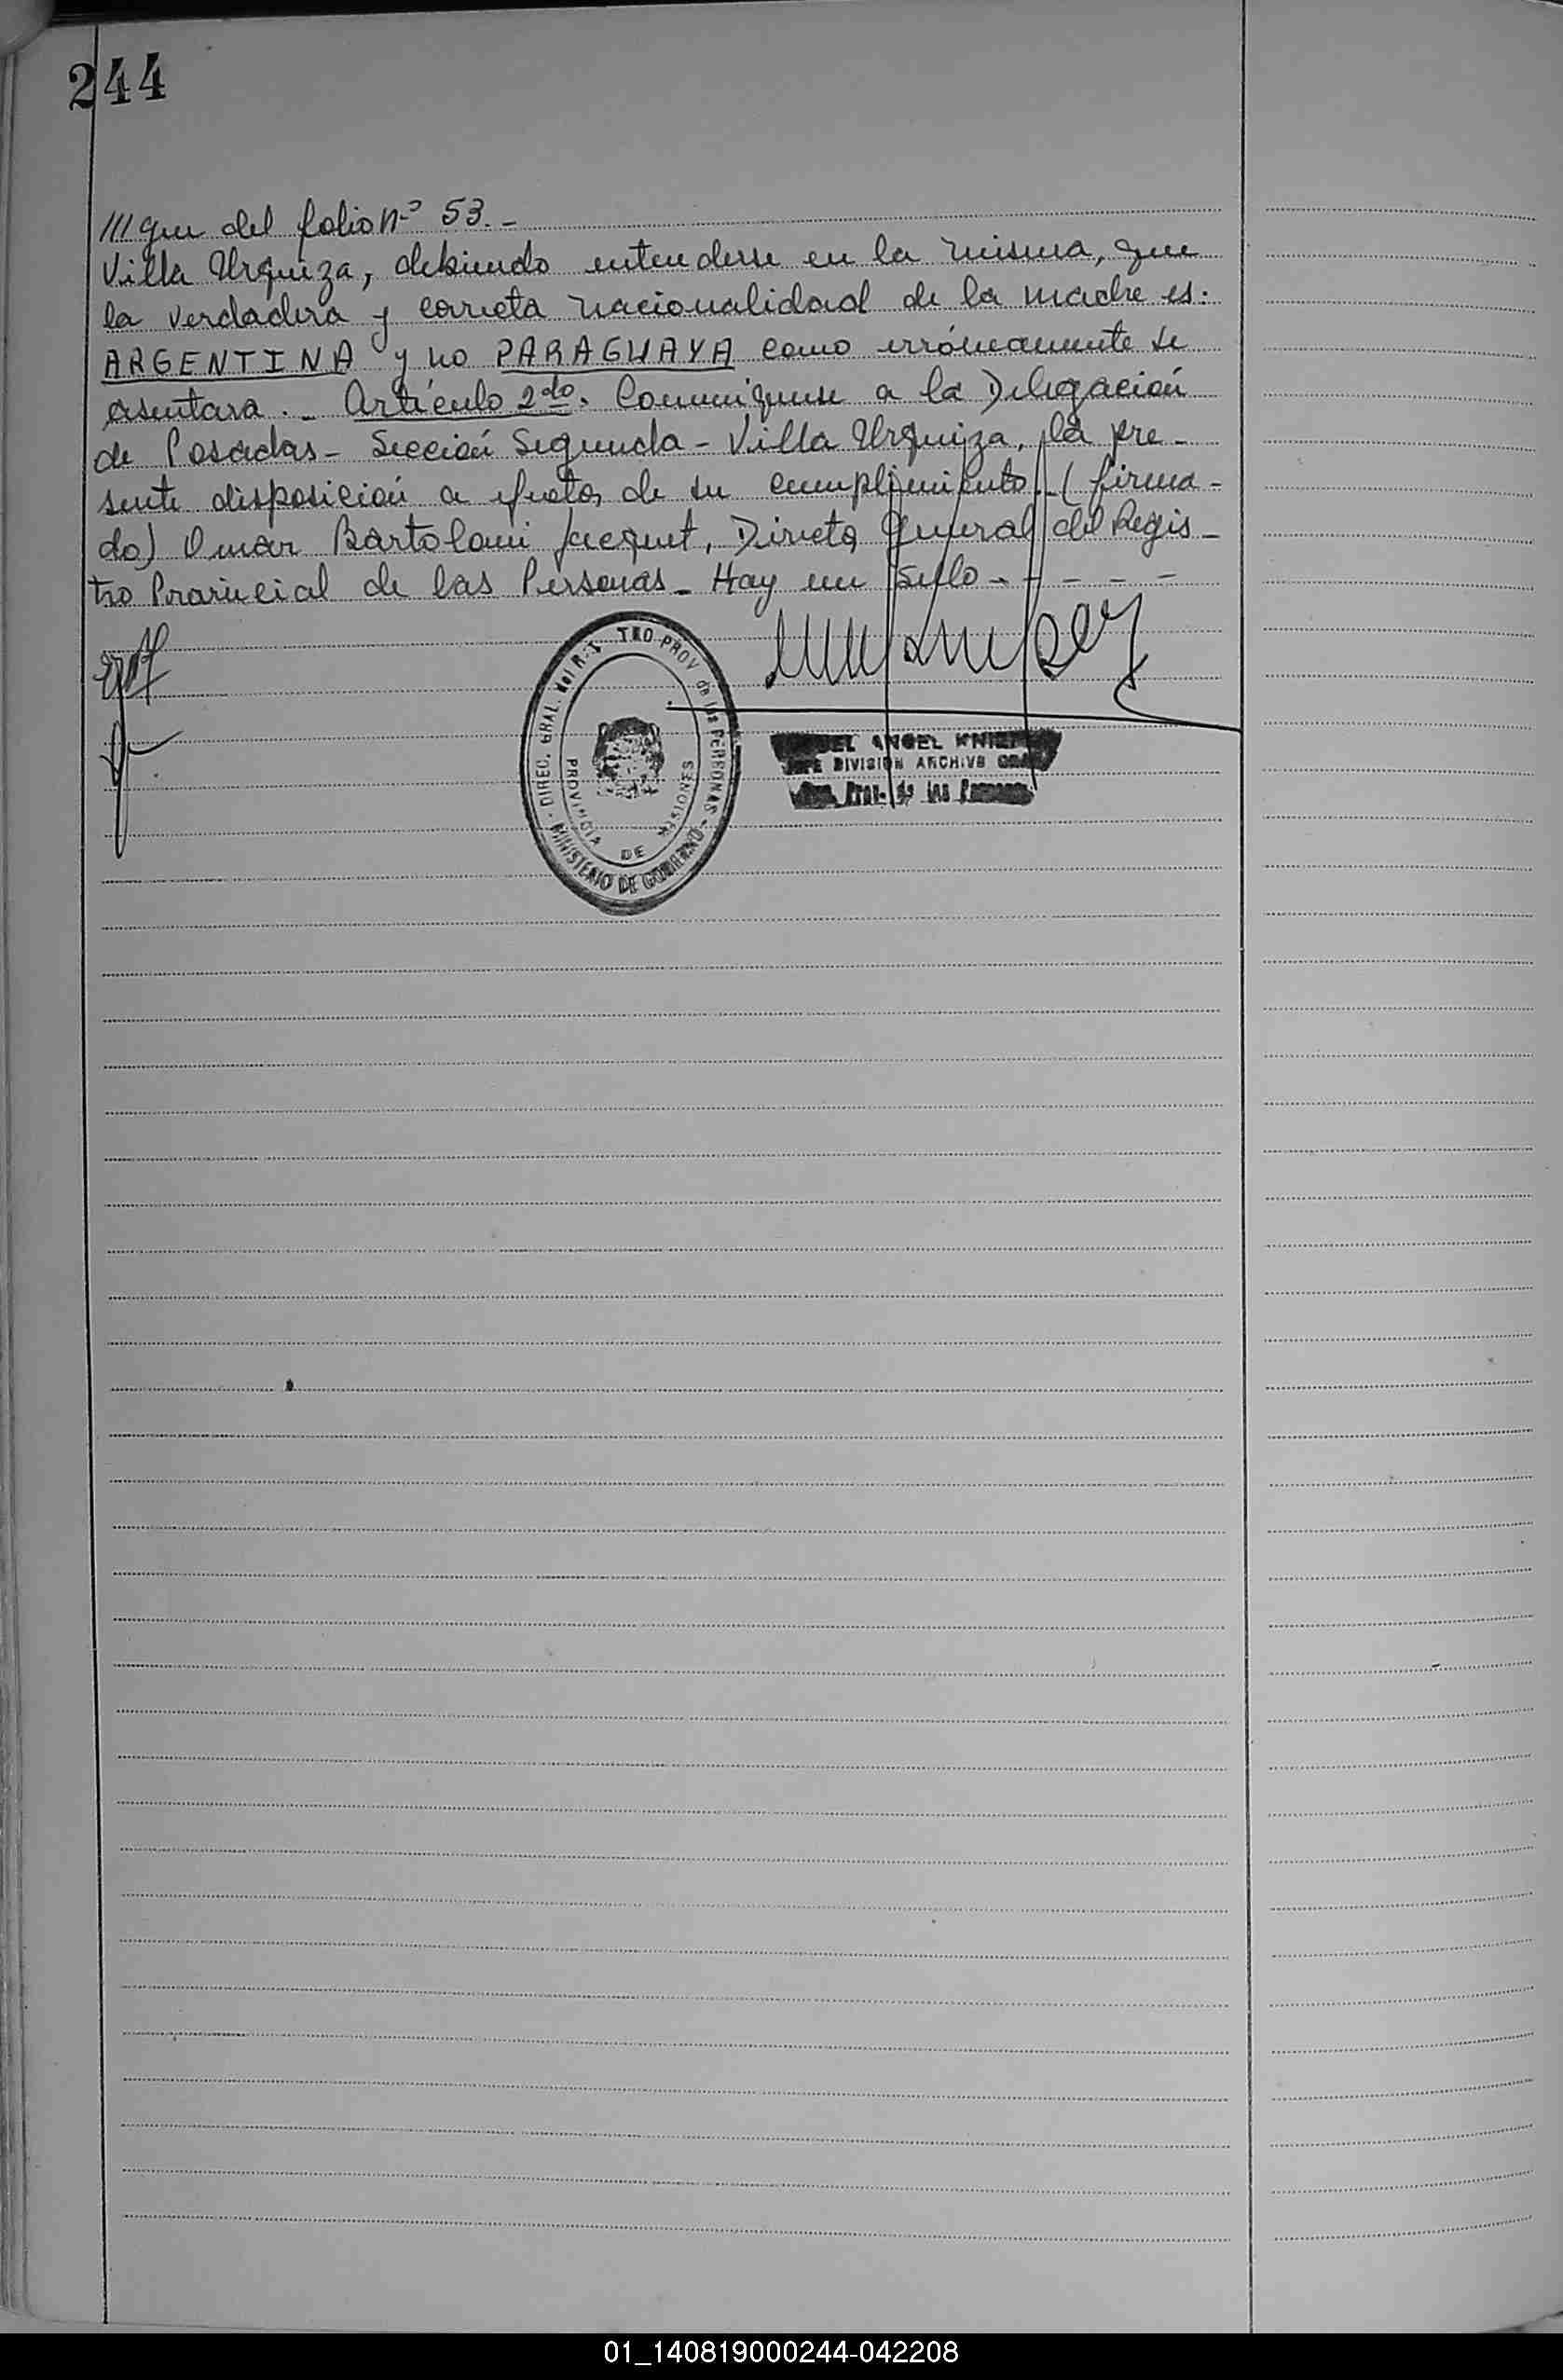 244
/// que del folio Nº 53.-
Villa Urquiza, debiendo entenderse en la misma, que
la verdadera y correcta nacionalidad de la madre es:
ARGENTINA y no PARAGUAYA como erróneamente se
asentara.- Artículo 2do. Comuníquese a la Delegación
de Posadas - Sección Segunda - Villa Urquiza, la pre-
sente disposición a efectos de su cumplimiento.- (firma-
do) Omar Bartolomé Jacquet, Director General del Regis-
tro Provincial de las Personas - Hay un sello - - - - -
DIREC. GRAL. del PROV de las PERSONAS - MINISTERIO DE GOBIERNO
PROVINCIA DE MISIONES
ANGEL
DIVISION ARCHIVO
Prov. de las
01_140819000244-042208